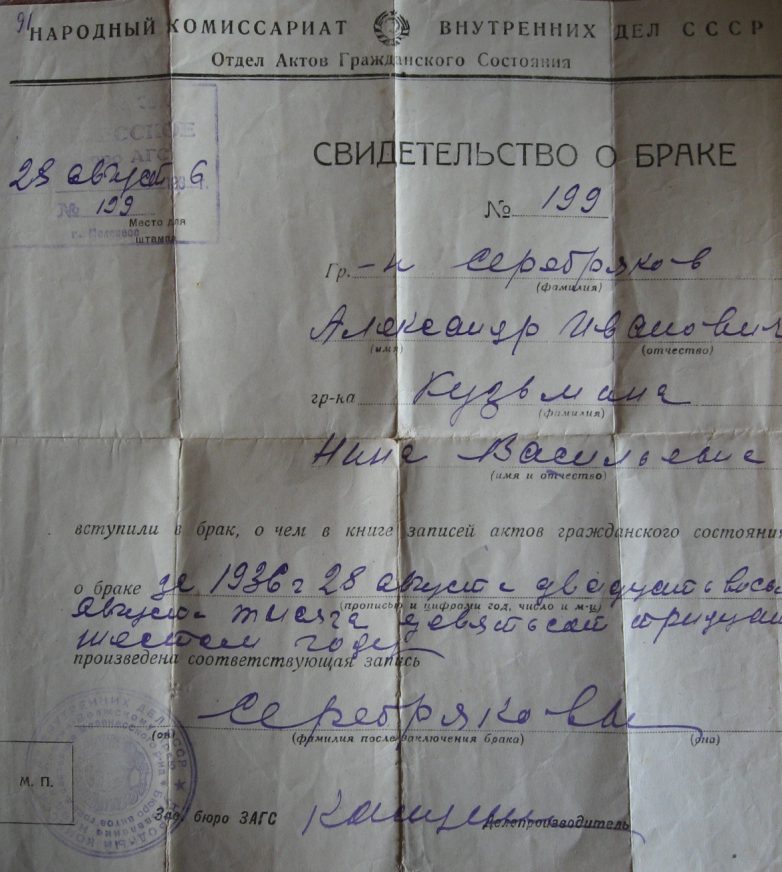 91
НАРОДНЫЙ КОМИССАРИАТ ВНУТРЕННИХ ДЕЛ СССР
Отдел Актов Гражданского Состояния
СВИДЕТЕЛЬСТВО О БРАКЕ
28 август 1936 г.
№ 199
№ 199
Место для
штампа
Гр.-н Серебряков
(фамилия)
Александр Иванович
(имя) (отчество)
гр-ка Кузьмина
(фамилия)
Нина Васильевна
(имя и отчество)
вступили в брак, о чем в книге записей актов гражданского состояния
о браке за 1936 г 28 августа двадцать восьм
(прописью и цифрами год, число и м-ц)
августа тысяча девятьсот тридцать
шестом году
произведена соответствующая запись
Серебряковы
(он) (фамилия после заключения брака) (она)
М. П.
Зав. бюро ЗАГС
Делопроизводитель